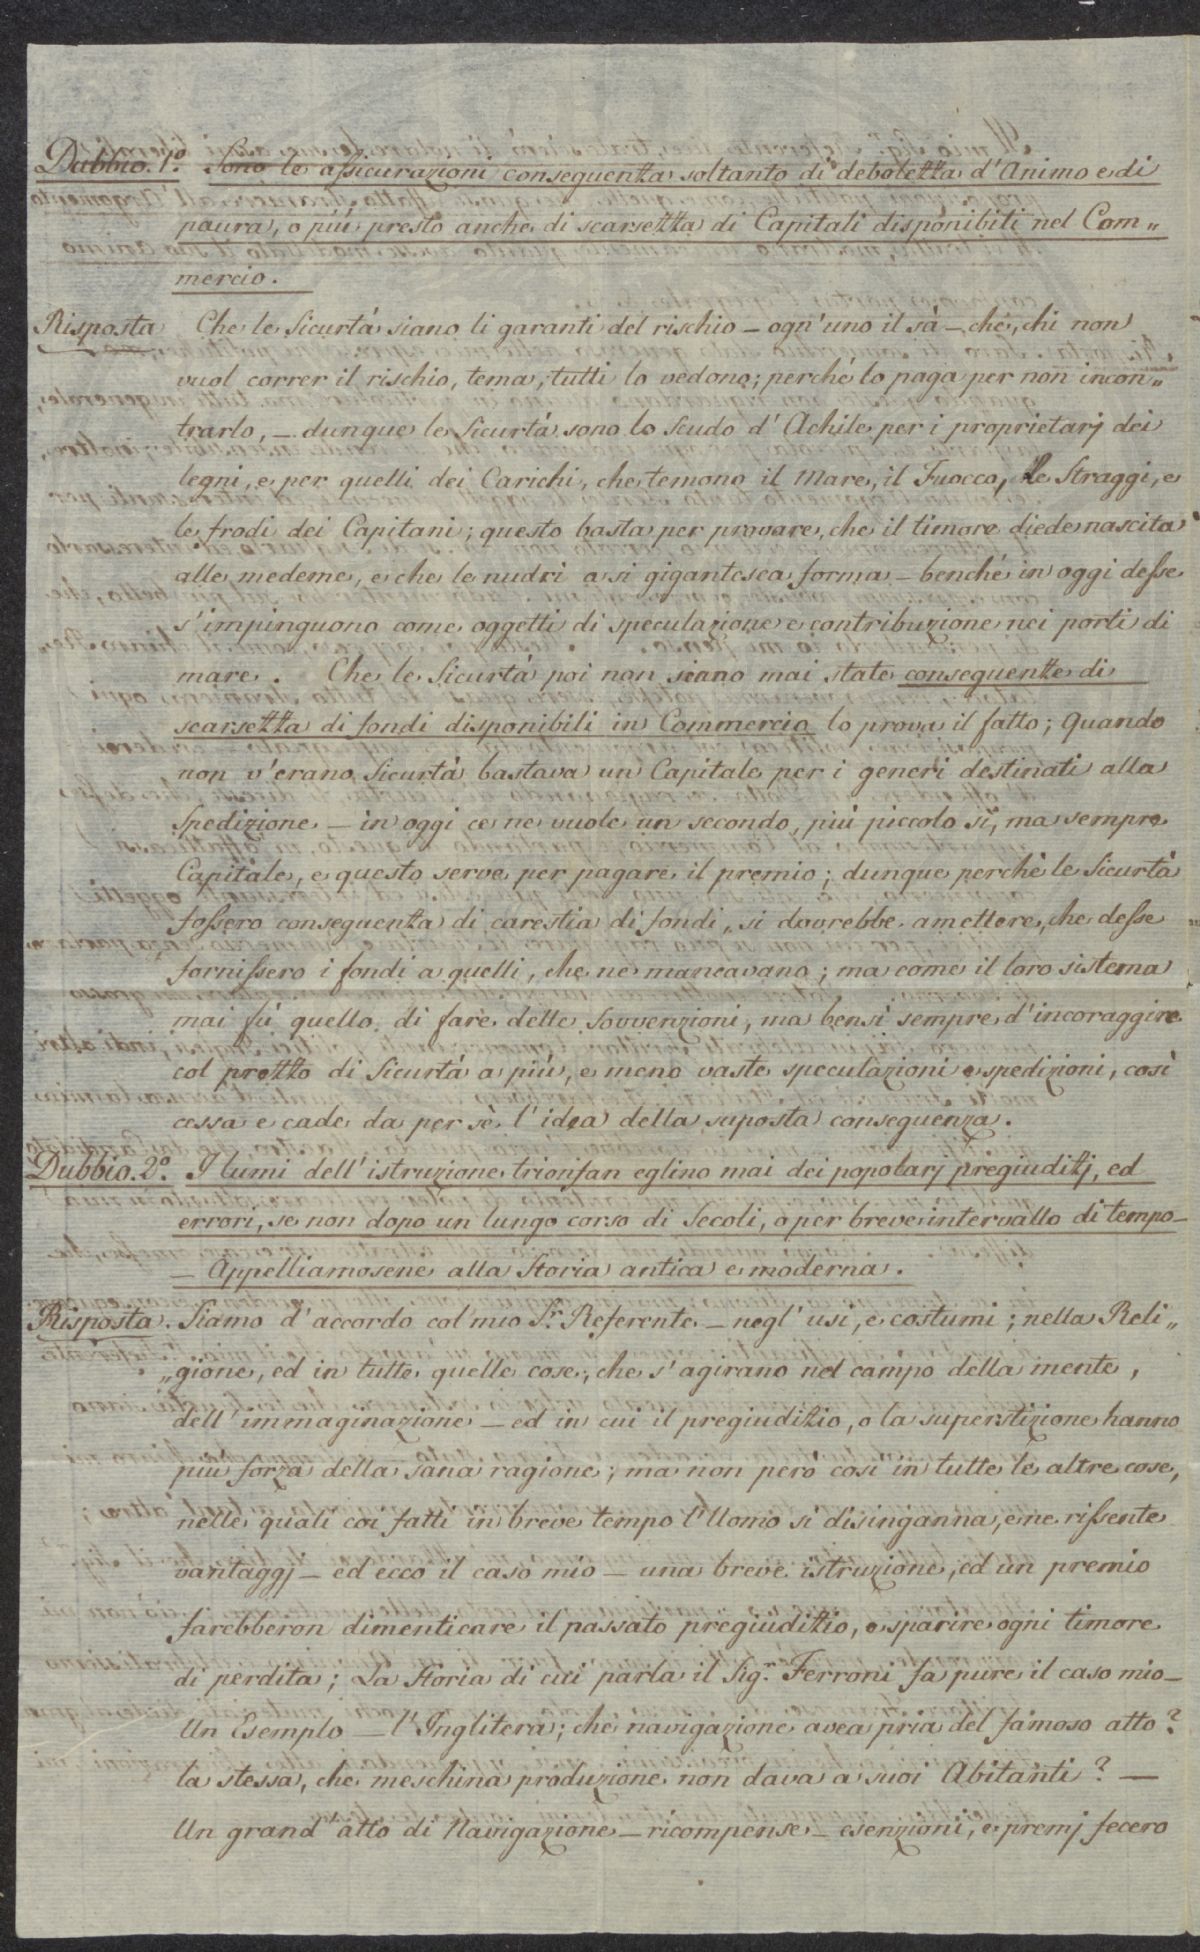 Dubbio. 1.º Sono le assicurazioni conseguenza soltanto di debolezza d'Animo e di
paura, o più presto anche di scarsezza di Capitali disponibili nel Com„
mercio.
Risposta Che le Sicurtà siano li garanti del rischio – ogn'uno il sà – ché, chi non
vuol correr il rischio, tema, tutti lo vedono; perché lo paga per non incon„
trarlo, – dunque le Sicurtà sono lo Scudo d'Achile per i proprietarj dei
legni, e per quelli dei Carichi, che temono il Mare, il Fuocco, le Straggi, e
le frodi dei Capitani; questo basta per provare, che il timore diede nascita
alle medeme, e che le nudrì a si gigantesca forma – benché in oggi desse
s'impinguono come oggetti di speculazione e contribuzione nei porti di
mare. Che le Sicurtà poi non siano mai state conseguenze di
scarsezza di fondi disponibili in Commercio lo prova il fatto; quando
non v'erano Sicurtà bastava un Capitale per i generi destinati alla
Spedizione – in oggi ce ne vuole un secondo, più piccolo sì, ma sempre
Capitale, e questo serve per pagare il premio; dunque perchè le Sicurtà
fossero conseguenza di carestia di fondi, si dovrebbe amettere, che desse
fornissero i fondi a quelli, che ne mancavano; ma come il loro sistema
mai fù quello di fare delle Sovvenzioni, ma bensì sempre d'incoraggire
col prezzo di Sicurtà a più, e meno vaste speculazioni e spedizioni, così
cessa e cade da per sè l'idea della suposta conseguenza.
Dubbio. 2.º I lumi dell'istruzione trionfan eglino mai dei popolarj pregiudizj, ed
errori, se non dopo un lungo corso di Secoli, o per breve intervallo di tempo –
– Appelliamosene alla Storia antica e moderna.
Risposta. Siamo d'accordo col mio Sr. Referente – negl'usi, e costumi; nella Reli„
„gione, ed in tutte quelle cose, che s'agirano nel campo della mente,
dell'immaginazione – ed in cui il pregiudizio, o la superstizione hanno
più forza della sana ragione; ma non però così in tutte le altre cose,
nelle quali coi fatti in breve tempo l'Uomo si disinganna, e ne rissente
vantaggj – ed ecco il caso mio – una breve istruzione, ed un premio
farebberon dimenticare il passato pregiudizio, e sparire ogni timore
di perdita; La Storia di cui parla il Sigr. Ferroni fa pure il caso mio –
Un Esemplo – l'Inglitera; che navigazione avea pria del famoso atto?
la stessa, che meschina produzione non dava a suoi Abitanti? —
Un grand'atto di Navigazione – ricompense – esenzioni, e premj fecero